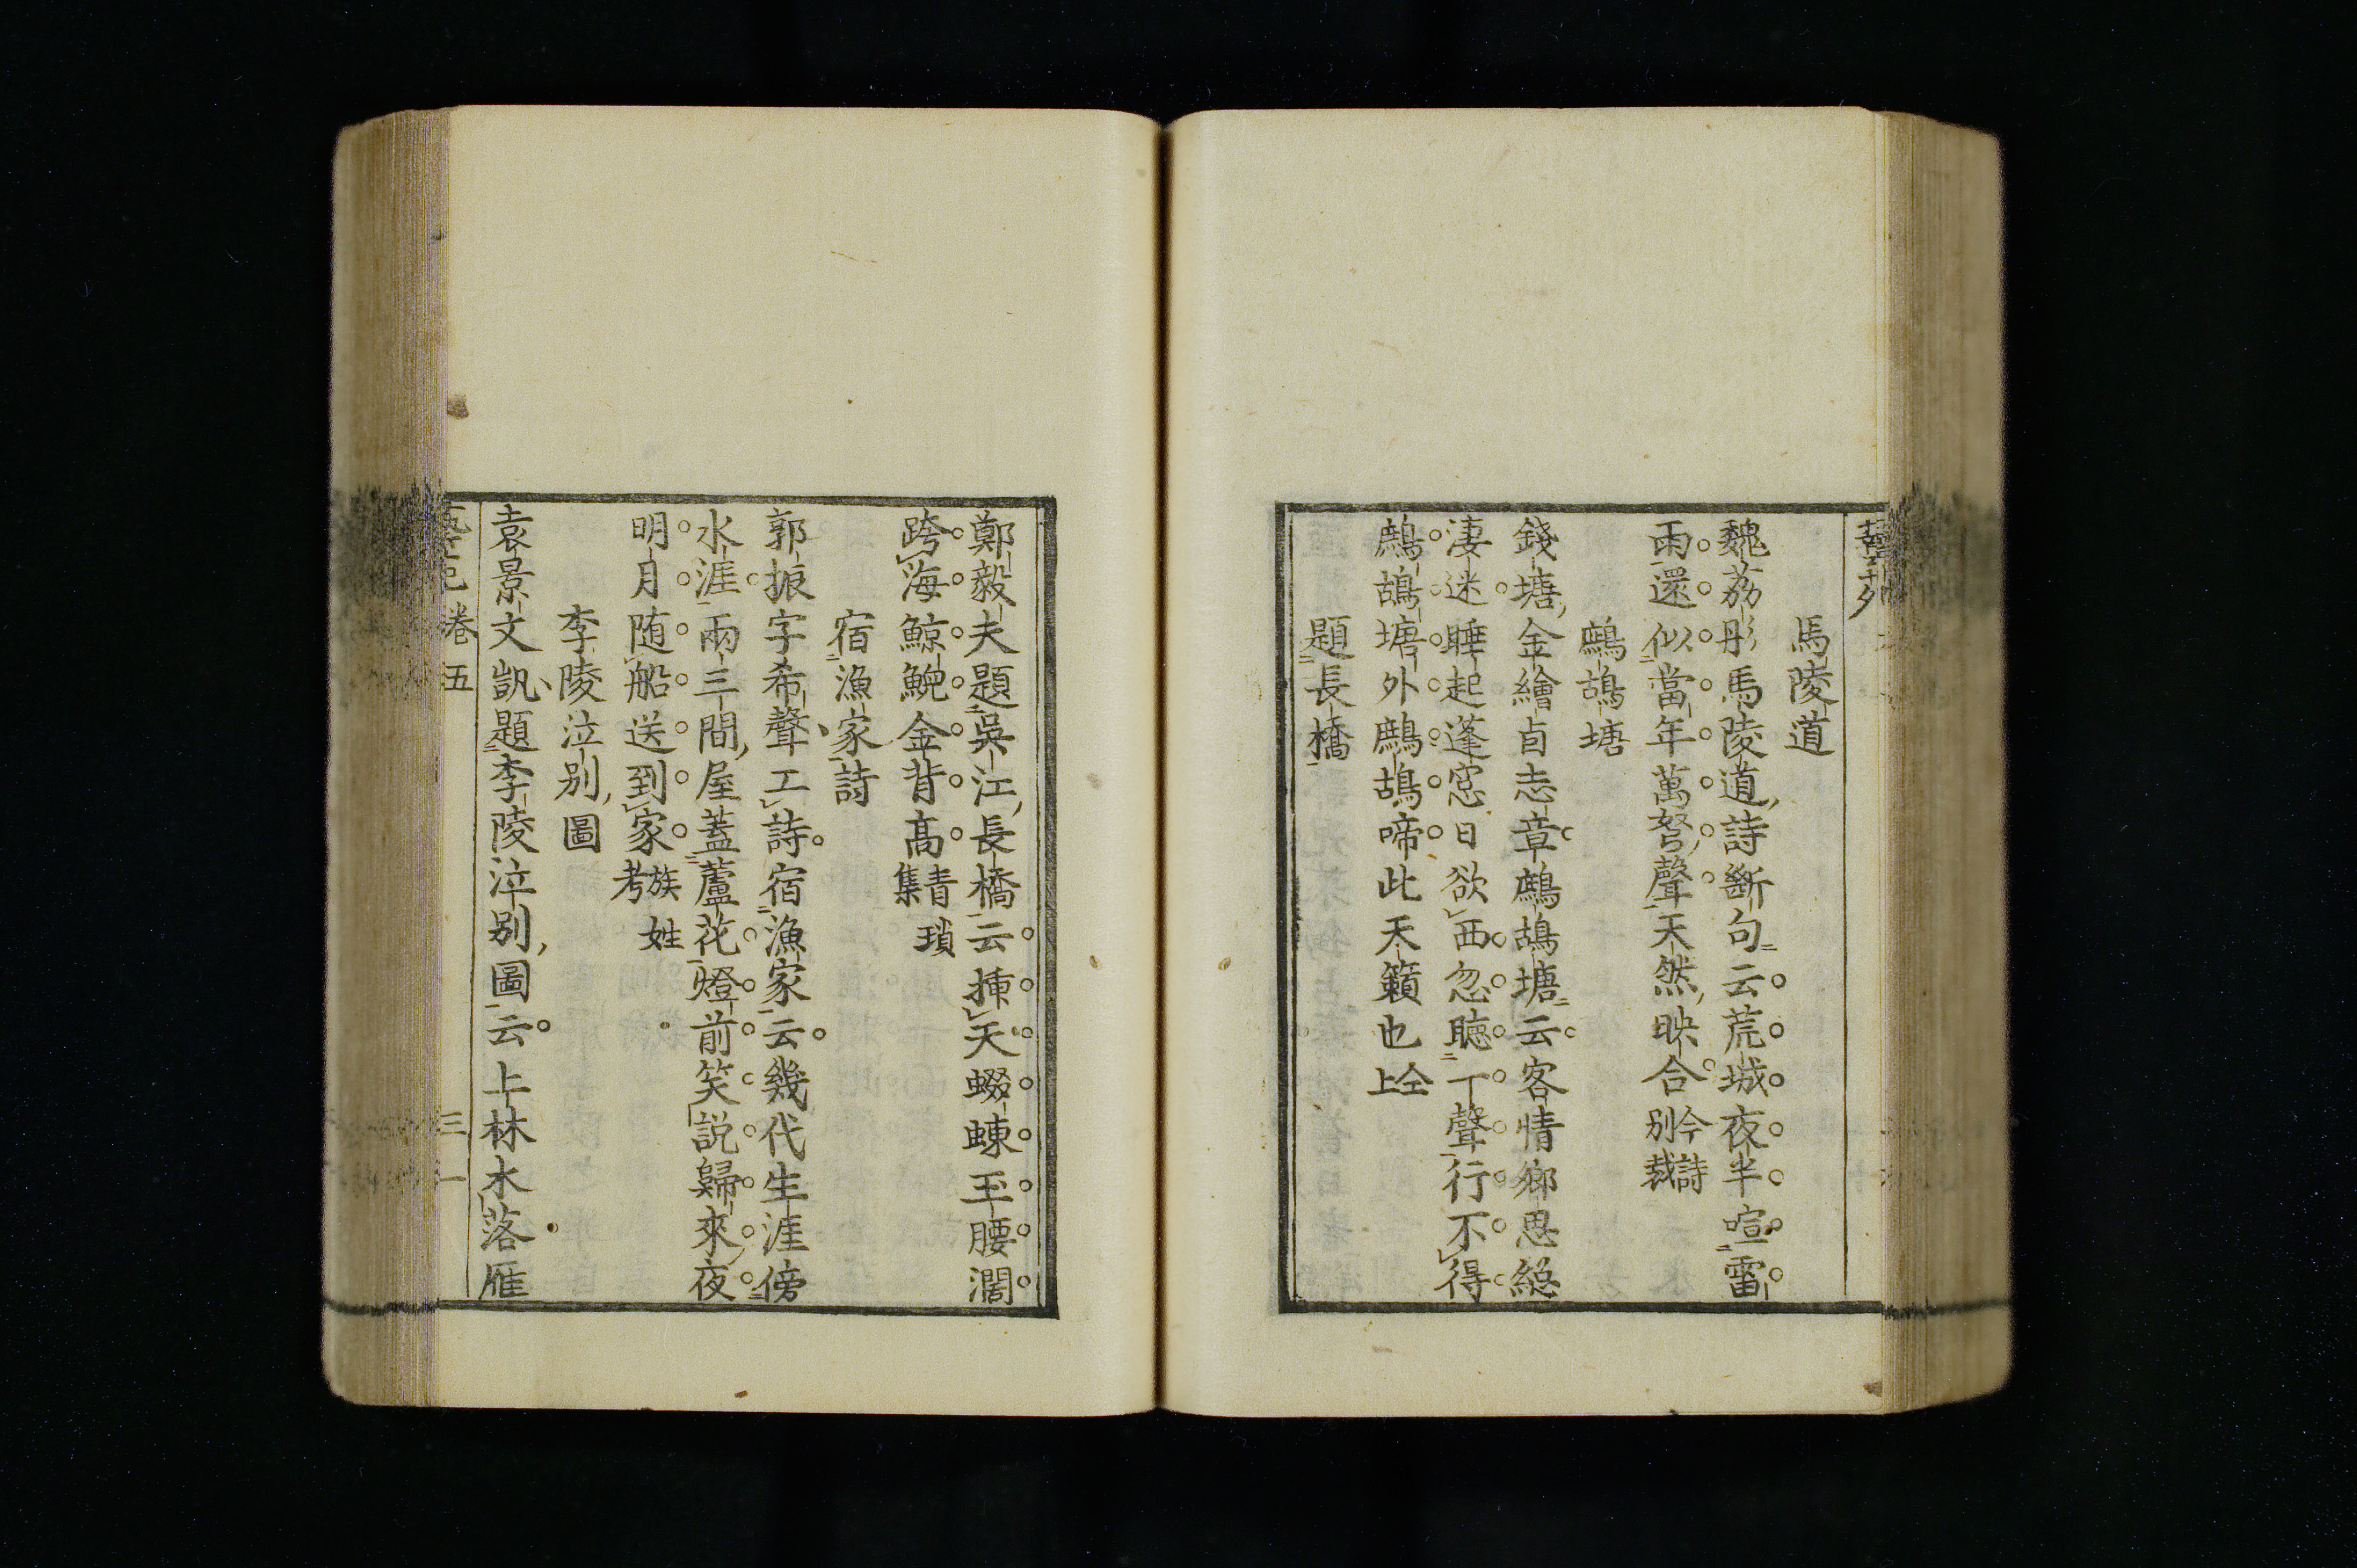 馬陵道
魏荔彤馬陵道詩斷句云荒城夜半喧雷
雨還似當年萬弩聲天然映合今詩別裁
鷓鴣塘
錢塘金繪卣志章鷓鴣塘云客情鄉思總
淒迷睡起蓬窓日欲西忽聽一聲行不得
鷓鴣塘外鷓鴣啼此天籟也仝上
題長橋
鄭毅夫題吳江長橋云揷天螮蝀玉腰濶
跨海鯨鯢金背高青瑣集
宿漁家詩
郭振字希聲工詩宿漁家云幾代生涯傍
水涯兩三間屋蓋蘆花燈前笑説歸來夜
明月随船送到家族姓考
李陵泣别圖
袁景文凱題李陵泣别圖云上林木落雁
卷五